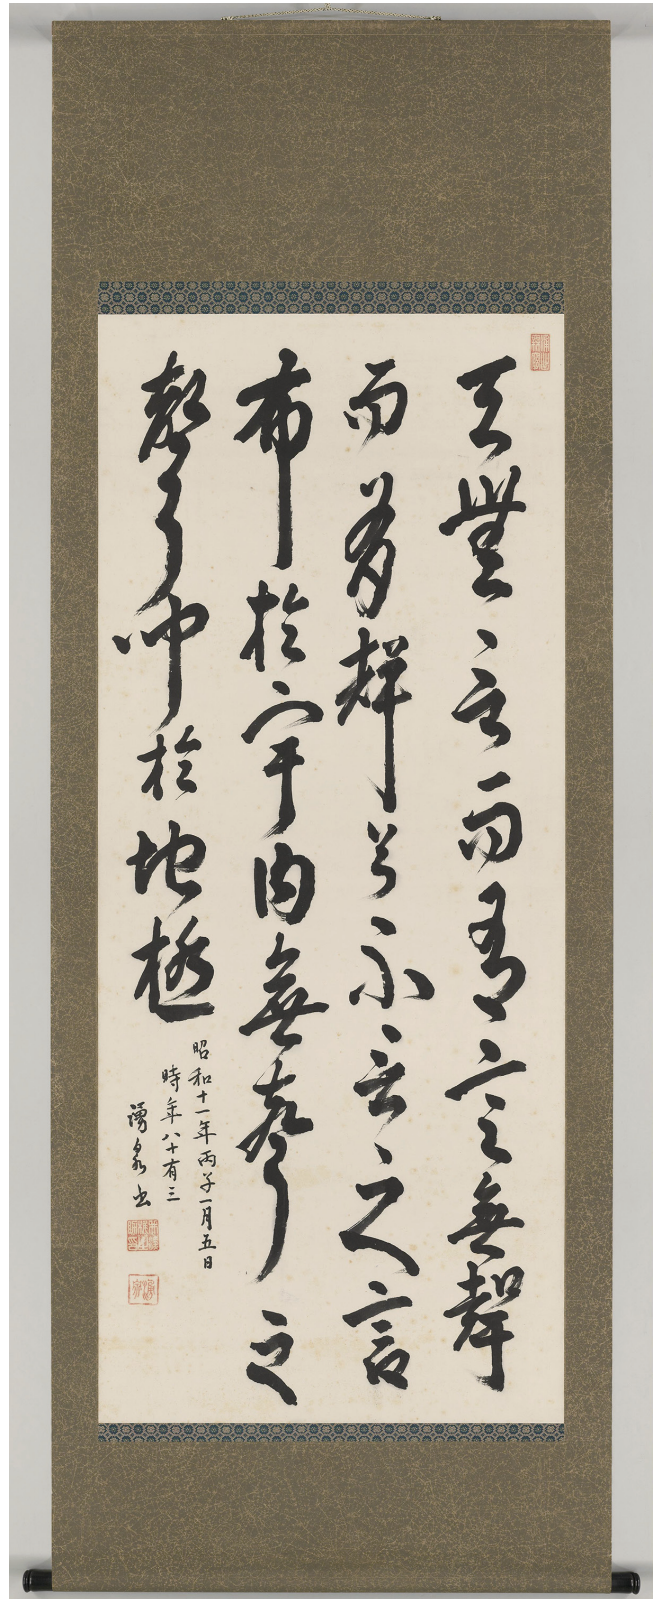 天無言而有言無聲
而有聲呼不言之言
布於宇內無聲之
聲
於地極
昭和十一年丙子一月五日
時年八十有三
湧泉書